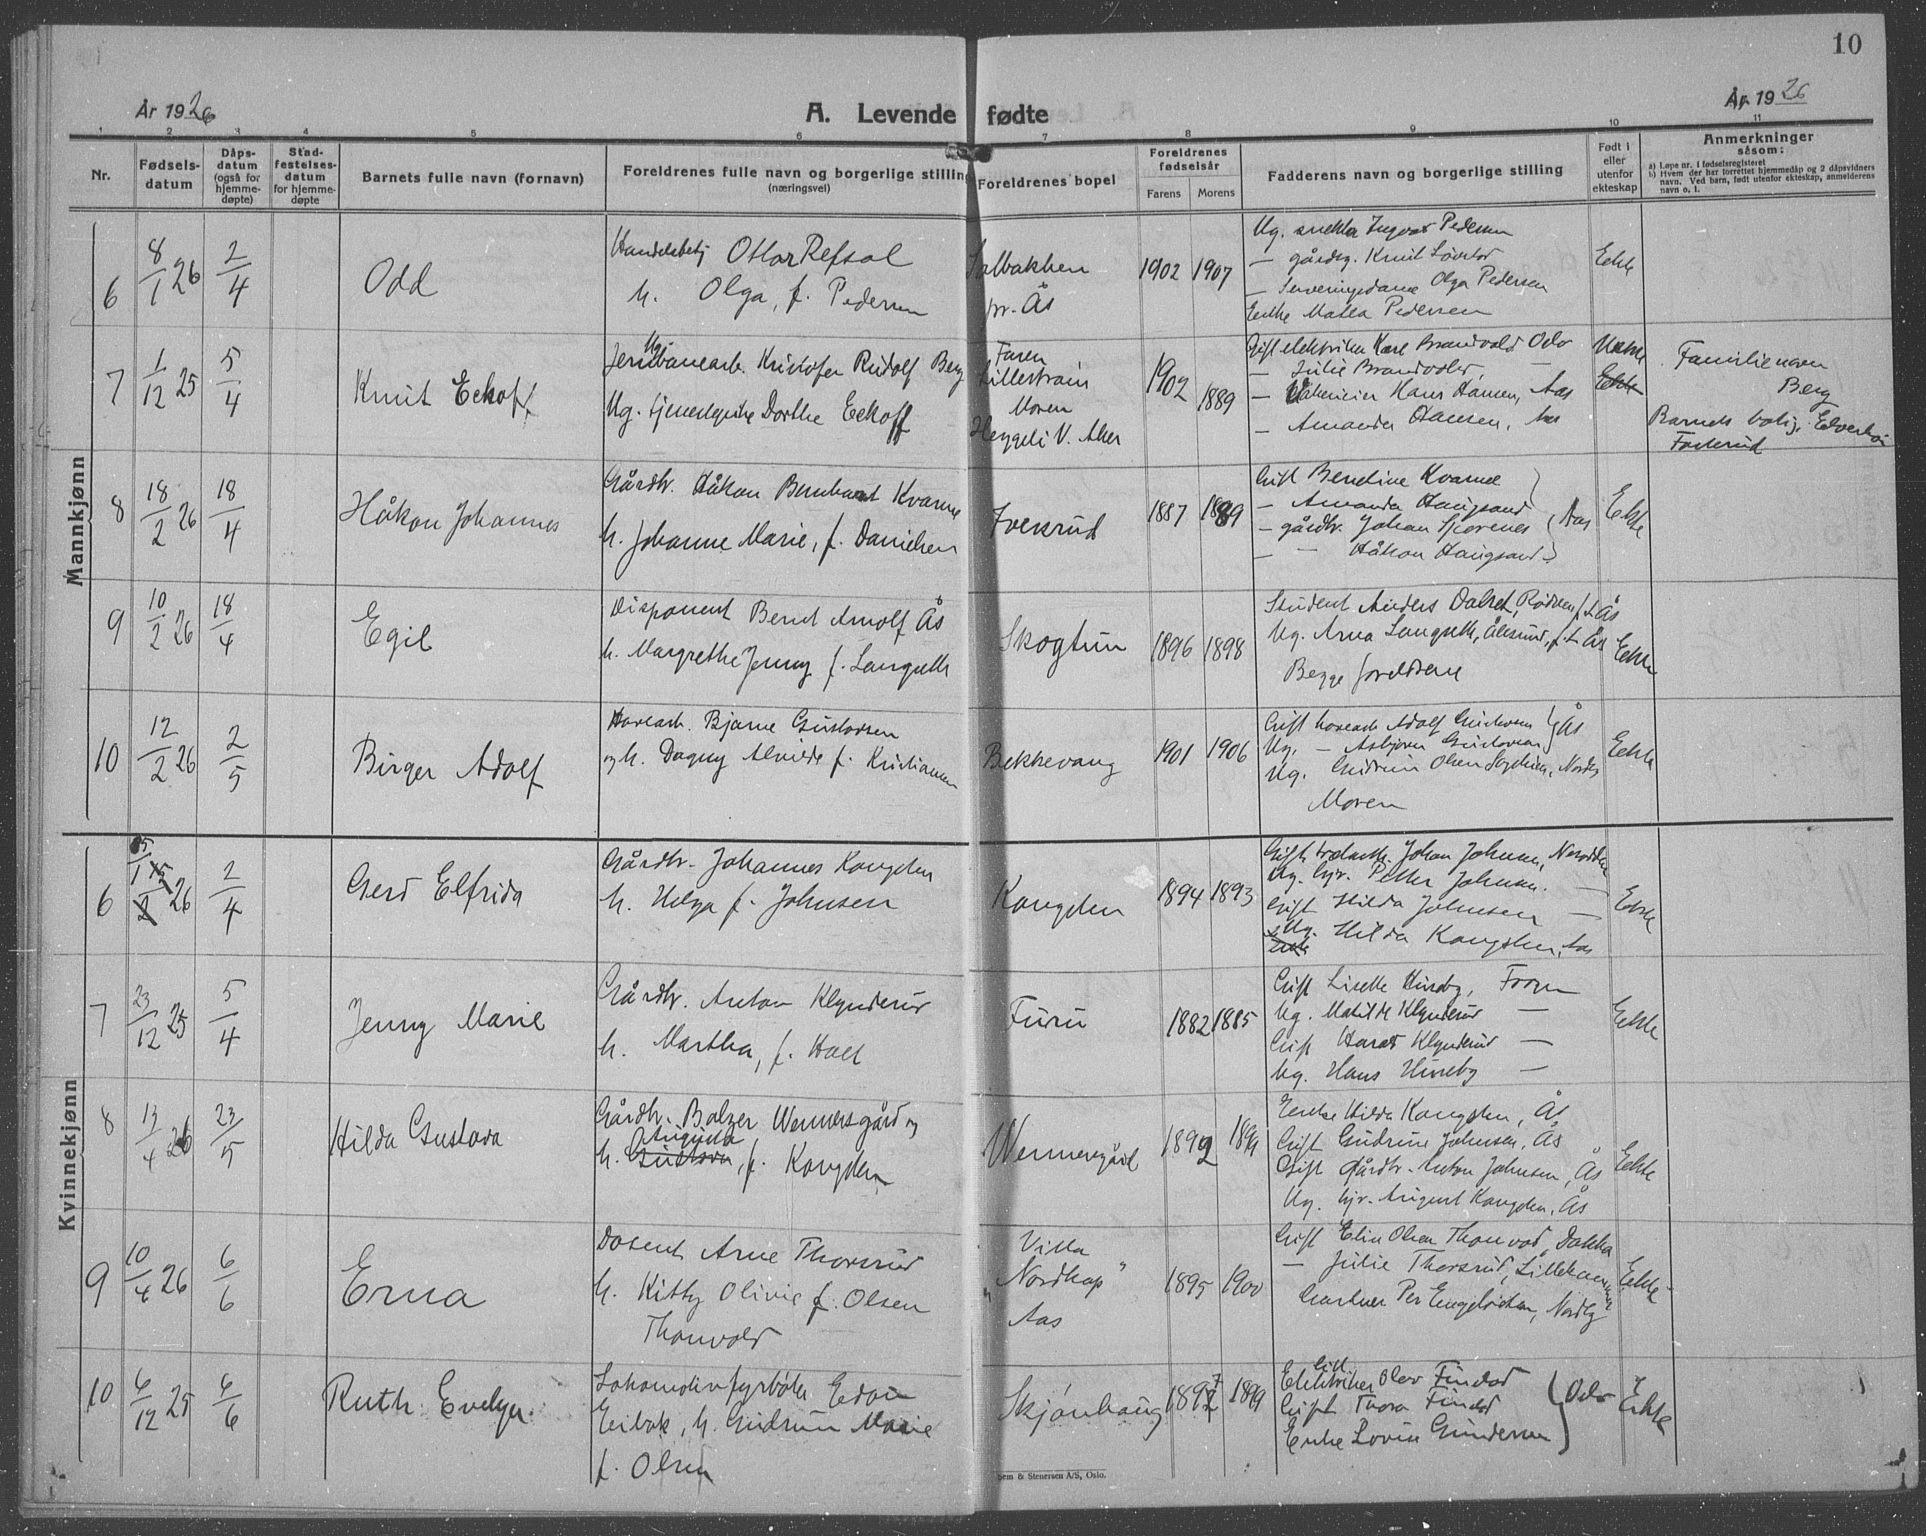 10
År 1926
A. Levende fødte
År 1926
1 2 3 4 5 6 7 8 9 10 11
Nr.
Fødselsdatum
Dåpsdatum (også for hjemmedøpte)
Stadfestelsesdatum for hjemmedøpte
Barnets fulle navn (fornavn)
Foreldrenes fulle navn og borgerlige stilling
(næringsvei)
Foreldrenes bopel
Foreldrenes fødselsår
Farens Morens
Fadderens navn og borgerlige stilling
Født i eller utenfor ekteskap
Anmerkninger
såsom:
a) Løpe nr. i fødselsregisteret
b) Hvem der har forrettet hjemmedåp og 2 dåpsvidners
navn. Ved barn, født utenfor ekteskap, anmelderens
navn o. l.
Mannkjønn
6 8/1 26 2/4 Odd
Ottar Refsal
h. Olga, f. Pedersen
Solbakken
pr. Ås
1902 1907
Ug. Ingvar Pedersen
— gårdsg. Knut
— Serveringsdame Olga Pedersen
Enke Matea Pedersen
Ekte
7 1/12 25 5/4 Knut Eckoff
Ug.
Jernbanearb. Kristofer Rudolf Berg
Ug. tjenestepike Dorthe Eckoff
Faren
Lillestrøm
Moren
Heggeli V. Aker
1902 1889
Gift elektriker Karl Brandvold Oslo
— Julie Brandvold, —
— Hans Hansen, Aas
— Amanda Hansen, Aas
Uekte
Ekte
Familienavn
Berg
Barnets bolig,
8 18/2 26 18/4 Håkon Johannes
Gårdbr. Håkon Bernhard Kvarne
h. Johanne Marie, f. Danielsen
Iversrud
1887 1889
Gift Bendine Kvarne
— Amanda Haugsand
— gårdbr. Johan
— — Håkon Haugsand
Aas
Ekte
9 10/2 26 18/4 Egil
Disponent Bernt Arnolf Ås
h. Margrethe Jenny f. Langseth
Skogtun
1896 1898
Student Anders Dalset, Rødven f.t. Ås
Ug. Arna Langseth, Ålesund, f.t. Ås
Begge foreldrene
Ekte
10 12/2 26 2/5 Birger Adolf
Bjarne Gustavsen
og h. Dagny Alvilde f. Kristiansen
Bekkevang
1901 1906
Gift Adolf Gustavsen
Ug. — Asbjørn Gustavsen
Ås
Ug. Gudrun Olsen
Moren
Ekte
Kvinnekjønn
6 26 2/4 Gerd Elfrida
Gårdbr. Johannes Kongelen
h. Helga f. Johnsen
Kongelen
1894 1893
Gift Johan Johnsen, Nesodden
Ug. hjv. Petter Johnsen. —
Gift Hilda Johnsen —
Ug. Hilda Kongelen, Aas
Ekte
7 23/12 25 5/4 Jenny Marie
Gårdbr. Anton Klynderud
h. Martha, f. Holt
Furu
1882 1885
Gift Lisette Huseby, Frogn
Ug. Matilde Klynderud —
Gift Harald Klynderud —
Ug. Hans Huseby —
Ekte
8 13/4 26 23/5 Hilda Gustava
Gårdbr. Balzer Wennersgård og
Augusta
h. Gustava, f. Kongelen
Wennersgård
1892 1899
Enke Hilda Kongelen, Ås
Gift Gudrun Johnsen, Ås
Gift Gårdbr. Anton Johnsen, Ås
Ug. hjv. August Kongelen, Ås
Ekte
9 10/4 26 6/6 Erna
Dosent Arne Thorsrud
h. Kitty Olivie f. Olsen
Thonvold
Villa
"Nordkap"
Aas
1895 1900
Gift Elin Olsen Thonvold, Dokka
— Julie Thorsrud, Lillehammer
Gartner Per Engebretsen, Nordby
Ekte
10 6/12 25 6/6 Ruth Evelyn
Lokomotivfyrbøter Edvin
Eibak, h. Gudrun Marie
f. Olsen
Skjønhaug
1897 1899
Gift
Elektriker Olav
Gift Thora
Enke Lovise Gundersen
Oslo
Ekte
& Stenersen A/S, Oslo.